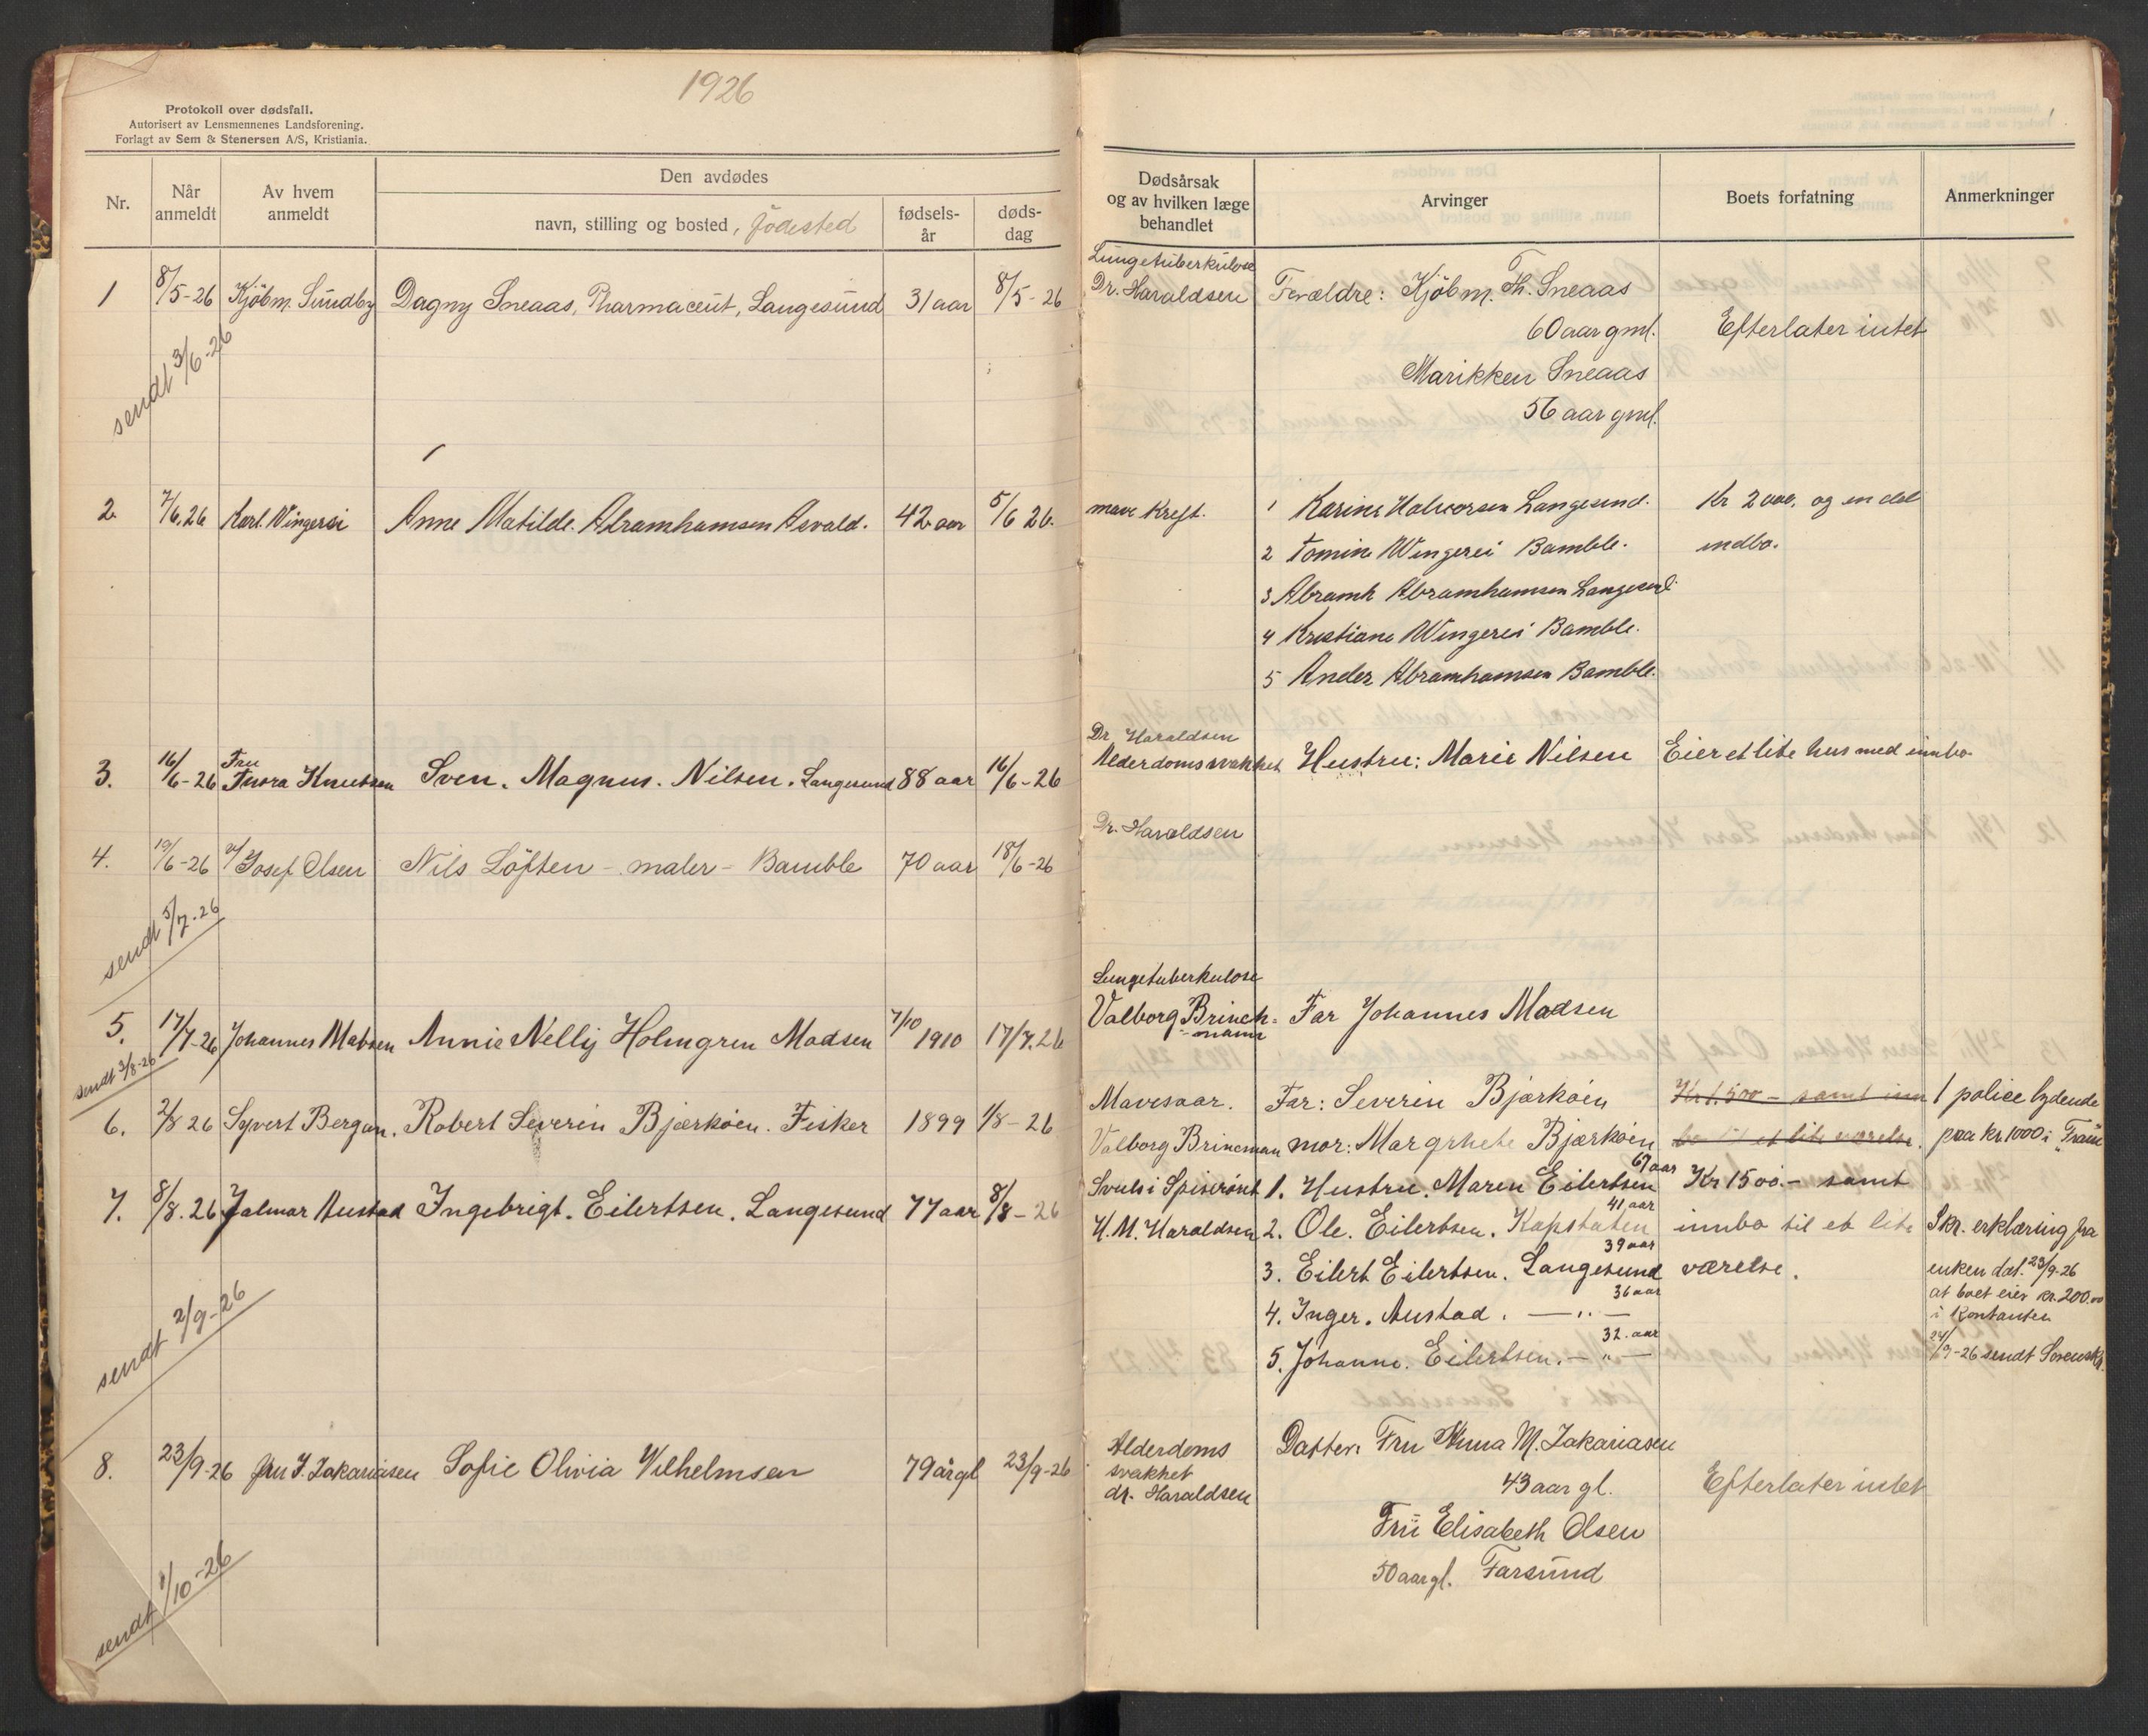 1926
Protokoll over dødsfall.
Autorisert av Lensmennenes Landsforening.
Forlagt av Sem & Stenersen A/S, Kristiania.
Nr.
Når anmeldt
Av hvem anmeldt
Den avdødes
navn, stilling og bosted, födested
fødselsår
dødsdag
Dødsårsak og av hvilken læge behandlet
Arvinger
Boets forfatning
Anmerkninger
1 8/5-26 Kjöbm. Sundby Dagny Sneaas, Pharmaceut, Langesund 31 aar 8/5-26
Lungetuberkulose
Dr. Haraldsen
Forældre: Kjöbm. Th. Sneaas
60 aar gml.
Marikken Sneaas
56 aar gml.
Efterlater intet
sendt 3/6-26
2. 7/6.26 Karl. Wingersi Anne Matilde. Abramhamsen Asvald. 42 aar 5/6 26.
mave Kreft.
1 Karine Halvorsen Langesund.
2 Tomine Wingerei Bamble.
3 Abramh Abramhamsen Langesund
4 Kristiane Wingerei Bamble.
5 Ander Abramhamsen Bamble.
Kr 2000, og en del
indbo.
3. 16/6-26 Fru Knutsen Sven. Magnus. Nilsen. Langesund 88 aar 16/6-26
Dr Haraldsen
Alderdomsvakhet
Hustru: Marie Nilsen
Eier et lite hus med innbo
4. 19/6-26 Josef Olsen Nils Löften - maler - Bamble 70 aar 18/6-26
Dr. Haraldsen
sendt 5/7-26
5. 17/7-26 Johannes Madsen Annie Nelly Holmgren Madsen 7/10 1910 17/7.26
Lungetuberkulose
Valborg Brinch-
mann
Far Johannes Madsen
sendt 2/8-26
6. 2/8 26 Syvert Bergan. Robert Severin Bjærköen. Fisker 1899 1/8-26
Mavesaar.
Valborg Brincman
Far: Severin Bjærköen
mor: Margrhete Bjærköen
Kr 1.500 - samt inn
bo til et lite værelse.
1 police lydende
paa kr 1000 i "Fram"
7. 8/8.26 Jalmar Austad Ingebrigt. Eilertsen. Langesund 77 aar 8/8-26
Svuls i Spiserönt
H. M. Haraldsen
1. Hustru. Maren Eilertsen 67 aar
2. Ole. Eilertsen. Kapstaten 41 aar
3. Eilert Eilertsen. Langesund 39 aar
4. Inger. Austad. — " — 36 aar
5. Johanne. Eilertsen. — " — 32. aar
Kr 1500.- samt
innbo til et lite
værelse.
Skr. erklæring fra
enken dat. 23/9-26
at boet eier kr. 200.00
i kontanter
24/9-26 sendt Sorenskr.
sendt 2/9-26
8. 23/9-26 Fru J. Zakariasen Sofie Olivia Wilhelmsen 79 år gl 23/9-26
Alderdoms
svakhet
dr. Haraldsen
Datter: Fru Anna M. Zakariasen
43 aar gl.
Fru Elisabeth Olsen
50 aar gl. Farsund
Efterlater intet
sendt 1/10-26